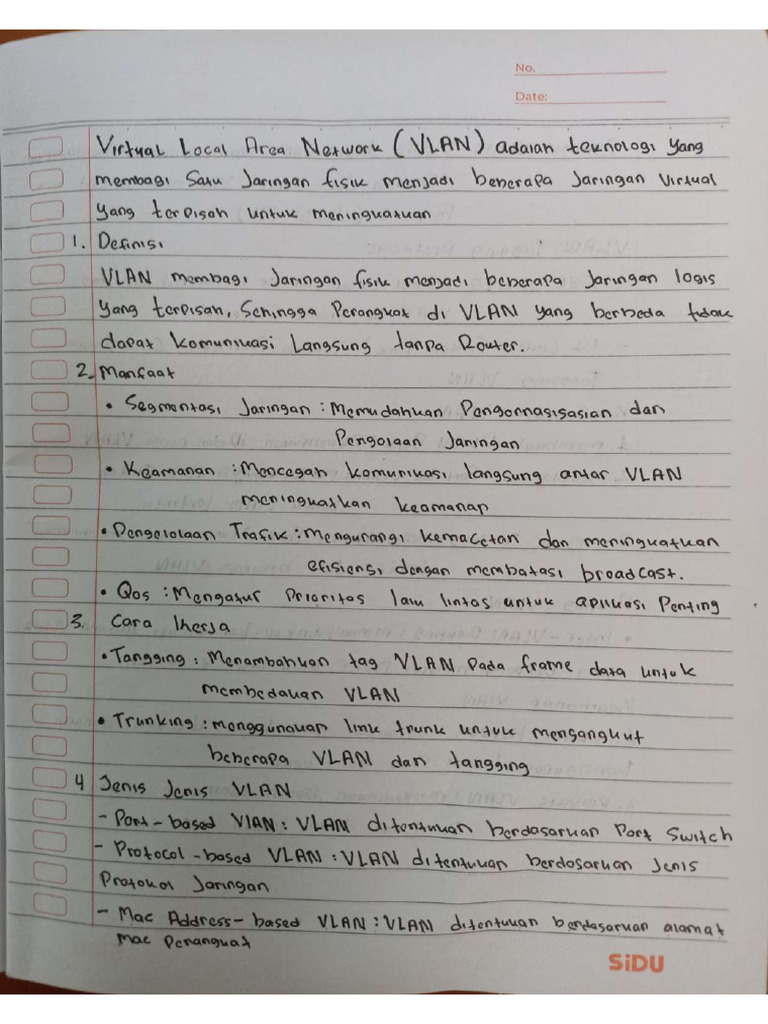 No.
Date:
Virtual Local Area Network (VLAN) adalah teknologi yang
membagi Satu Jaringan fisik menjadi beberapa Jaringan Virtual
yang terpisah untuk meningkatkan
1. Definisi
VLAN membagi Jaringan fisik menjadi beberapa Jaringan logis
yang terpisah, Sehingga Perangkat di VLAN yang berbeda tidak
dapat Komunikasi Langsung tanpa Router.
2. Manfaat
• Segmentasi Jaringan : Memudahkan Pengornasisasian dan
Pengolaan Jaringan
• Keamanan : Mencegah komunikasi langsung antar VLAN
meningkatkan keamanan
• Pengelolaan Trafik : Mengurangi kemacetan dan meningkatkan
efisiensi dengan membatasi broadcast.
• Qos : Mengatur Prioritas lalu lintas untuk aplikasi Penting
3. Cara Kherja
• Tangging : Menambahkan tag VLAN Pada frame data untuk
membedakan VLAN
• Trunking : menggunakan link trunk untuk mengangkut
beberapa VLAN dan tangging
4 Jenis Jenis VLAN
- Port-based VlAN : VLAN ditentukan berdasarkan Port Switch
- Protocol-based VLAN : VLAN ditentukan berdasarkan Jenis
Protokol Jaringan
- Mac Address-based VLAN : VLAN ditentukan berdasarkan alamat
Mac Perangkat
SiDU